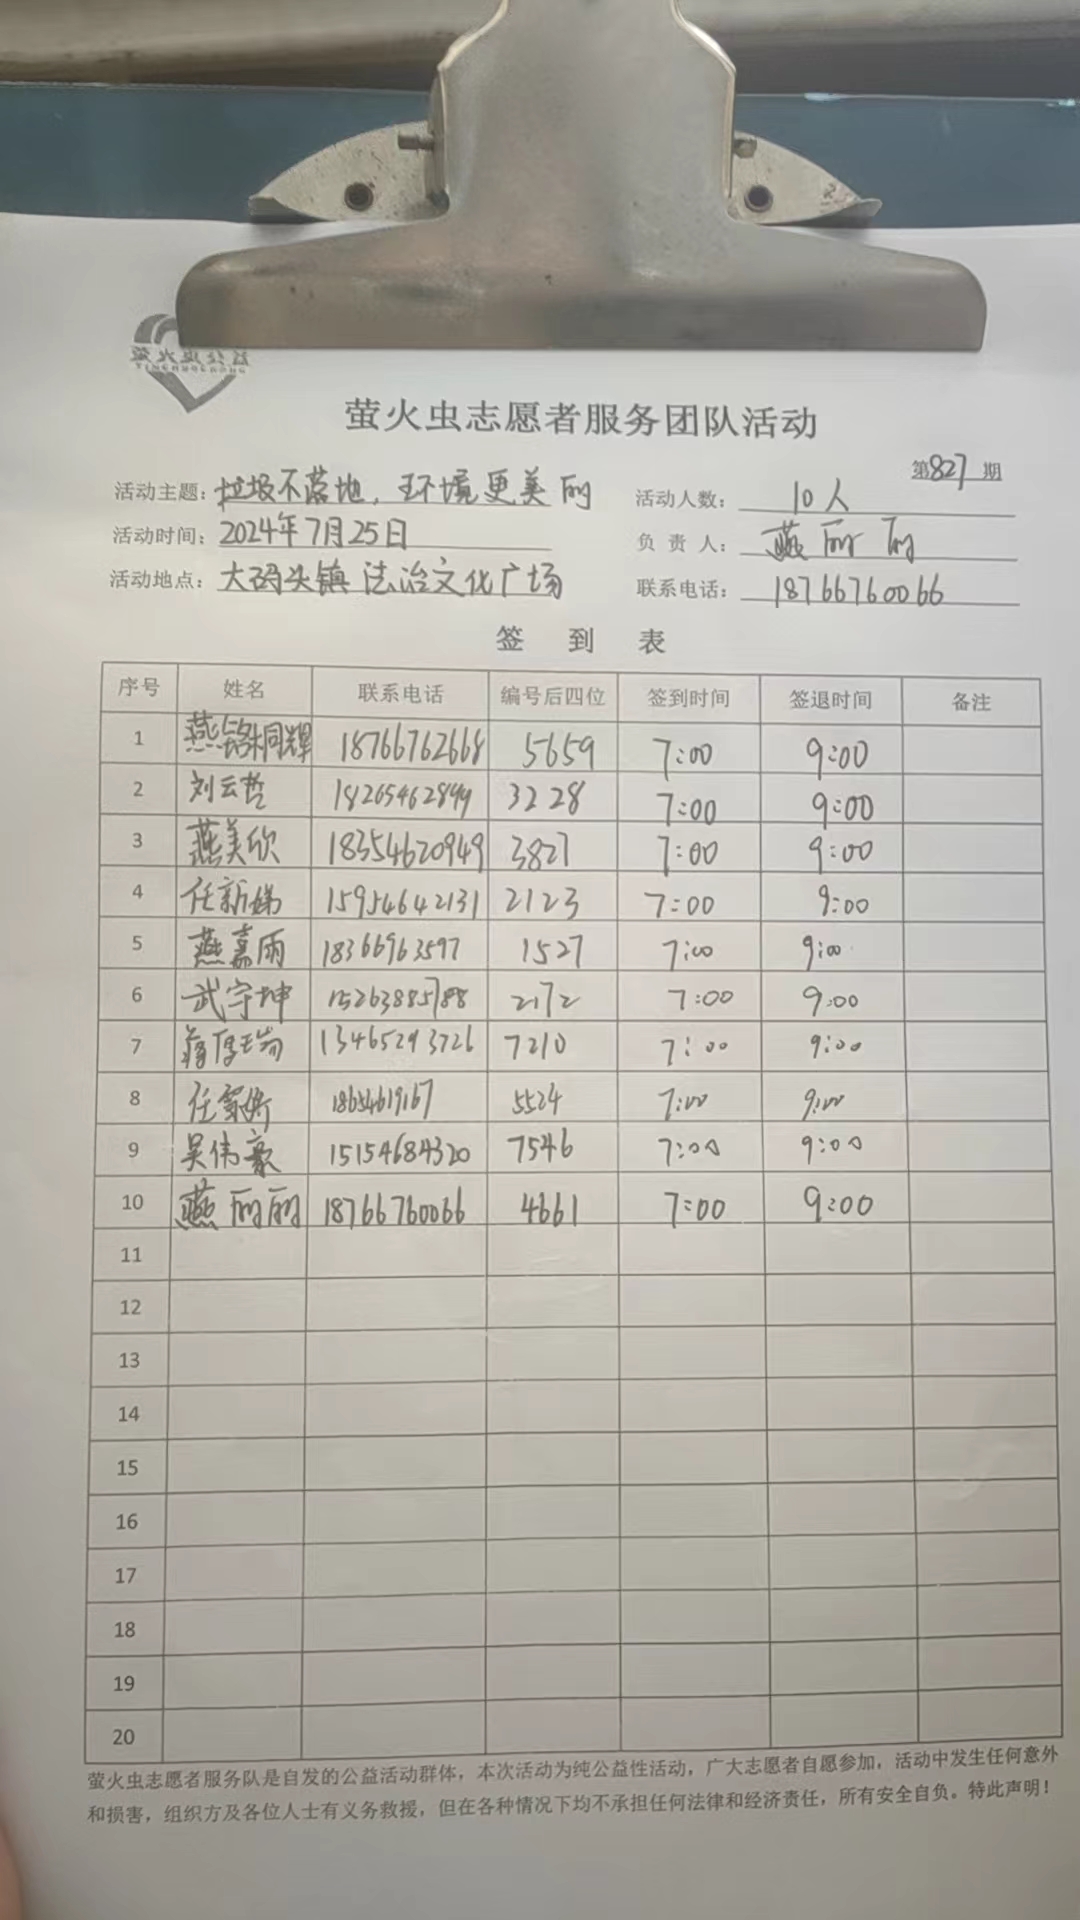 萤火虫志愿者服务团队活动
第827期
活动主题：垃圾不落地，环境更美丽 活动人数：10人
活动时间：2024年7月25日 负责人：燕丽丽
活动地点：大码头镇法治文化广场 联系电话：18766760066
签到表
序号 姓名 联系电话 编号后四位 签到时间 签退时间 备注
1 燕 18766762668 5659 7:00 9:00
2 刘云哲 18265462899 3228 7:00 9:00
3 燕美欣 18354620949 3827 7:00 9:00
4 任新娣 15954642131 2123 7:00 9:00
5 燕嘉雨 18366963597 1527 7:00 9:00
6 武守坤 15263885788 2172 7:00 9:00
7 蒋厚瑞 13465293726 7210 7:00 9:00
8 任 18654619167 5524 7:00 9:00
9 吴伟豪 15154684320 7546 7:00 9:00
10 燕丽丽 18766760066 4661 7:00 9:00
11
12
13
14
15
16
17
18
19
20
萤火虫志愿者服务队是自发的公益活动群体，本次活动为纯公益性活动，广大志愿者自愿参加，活动中发生任何意外
和损害，组织方及各位人士有义务救援，但在各种情况下均不承担任何法律和经济责任，所有安全自负。特此声明！